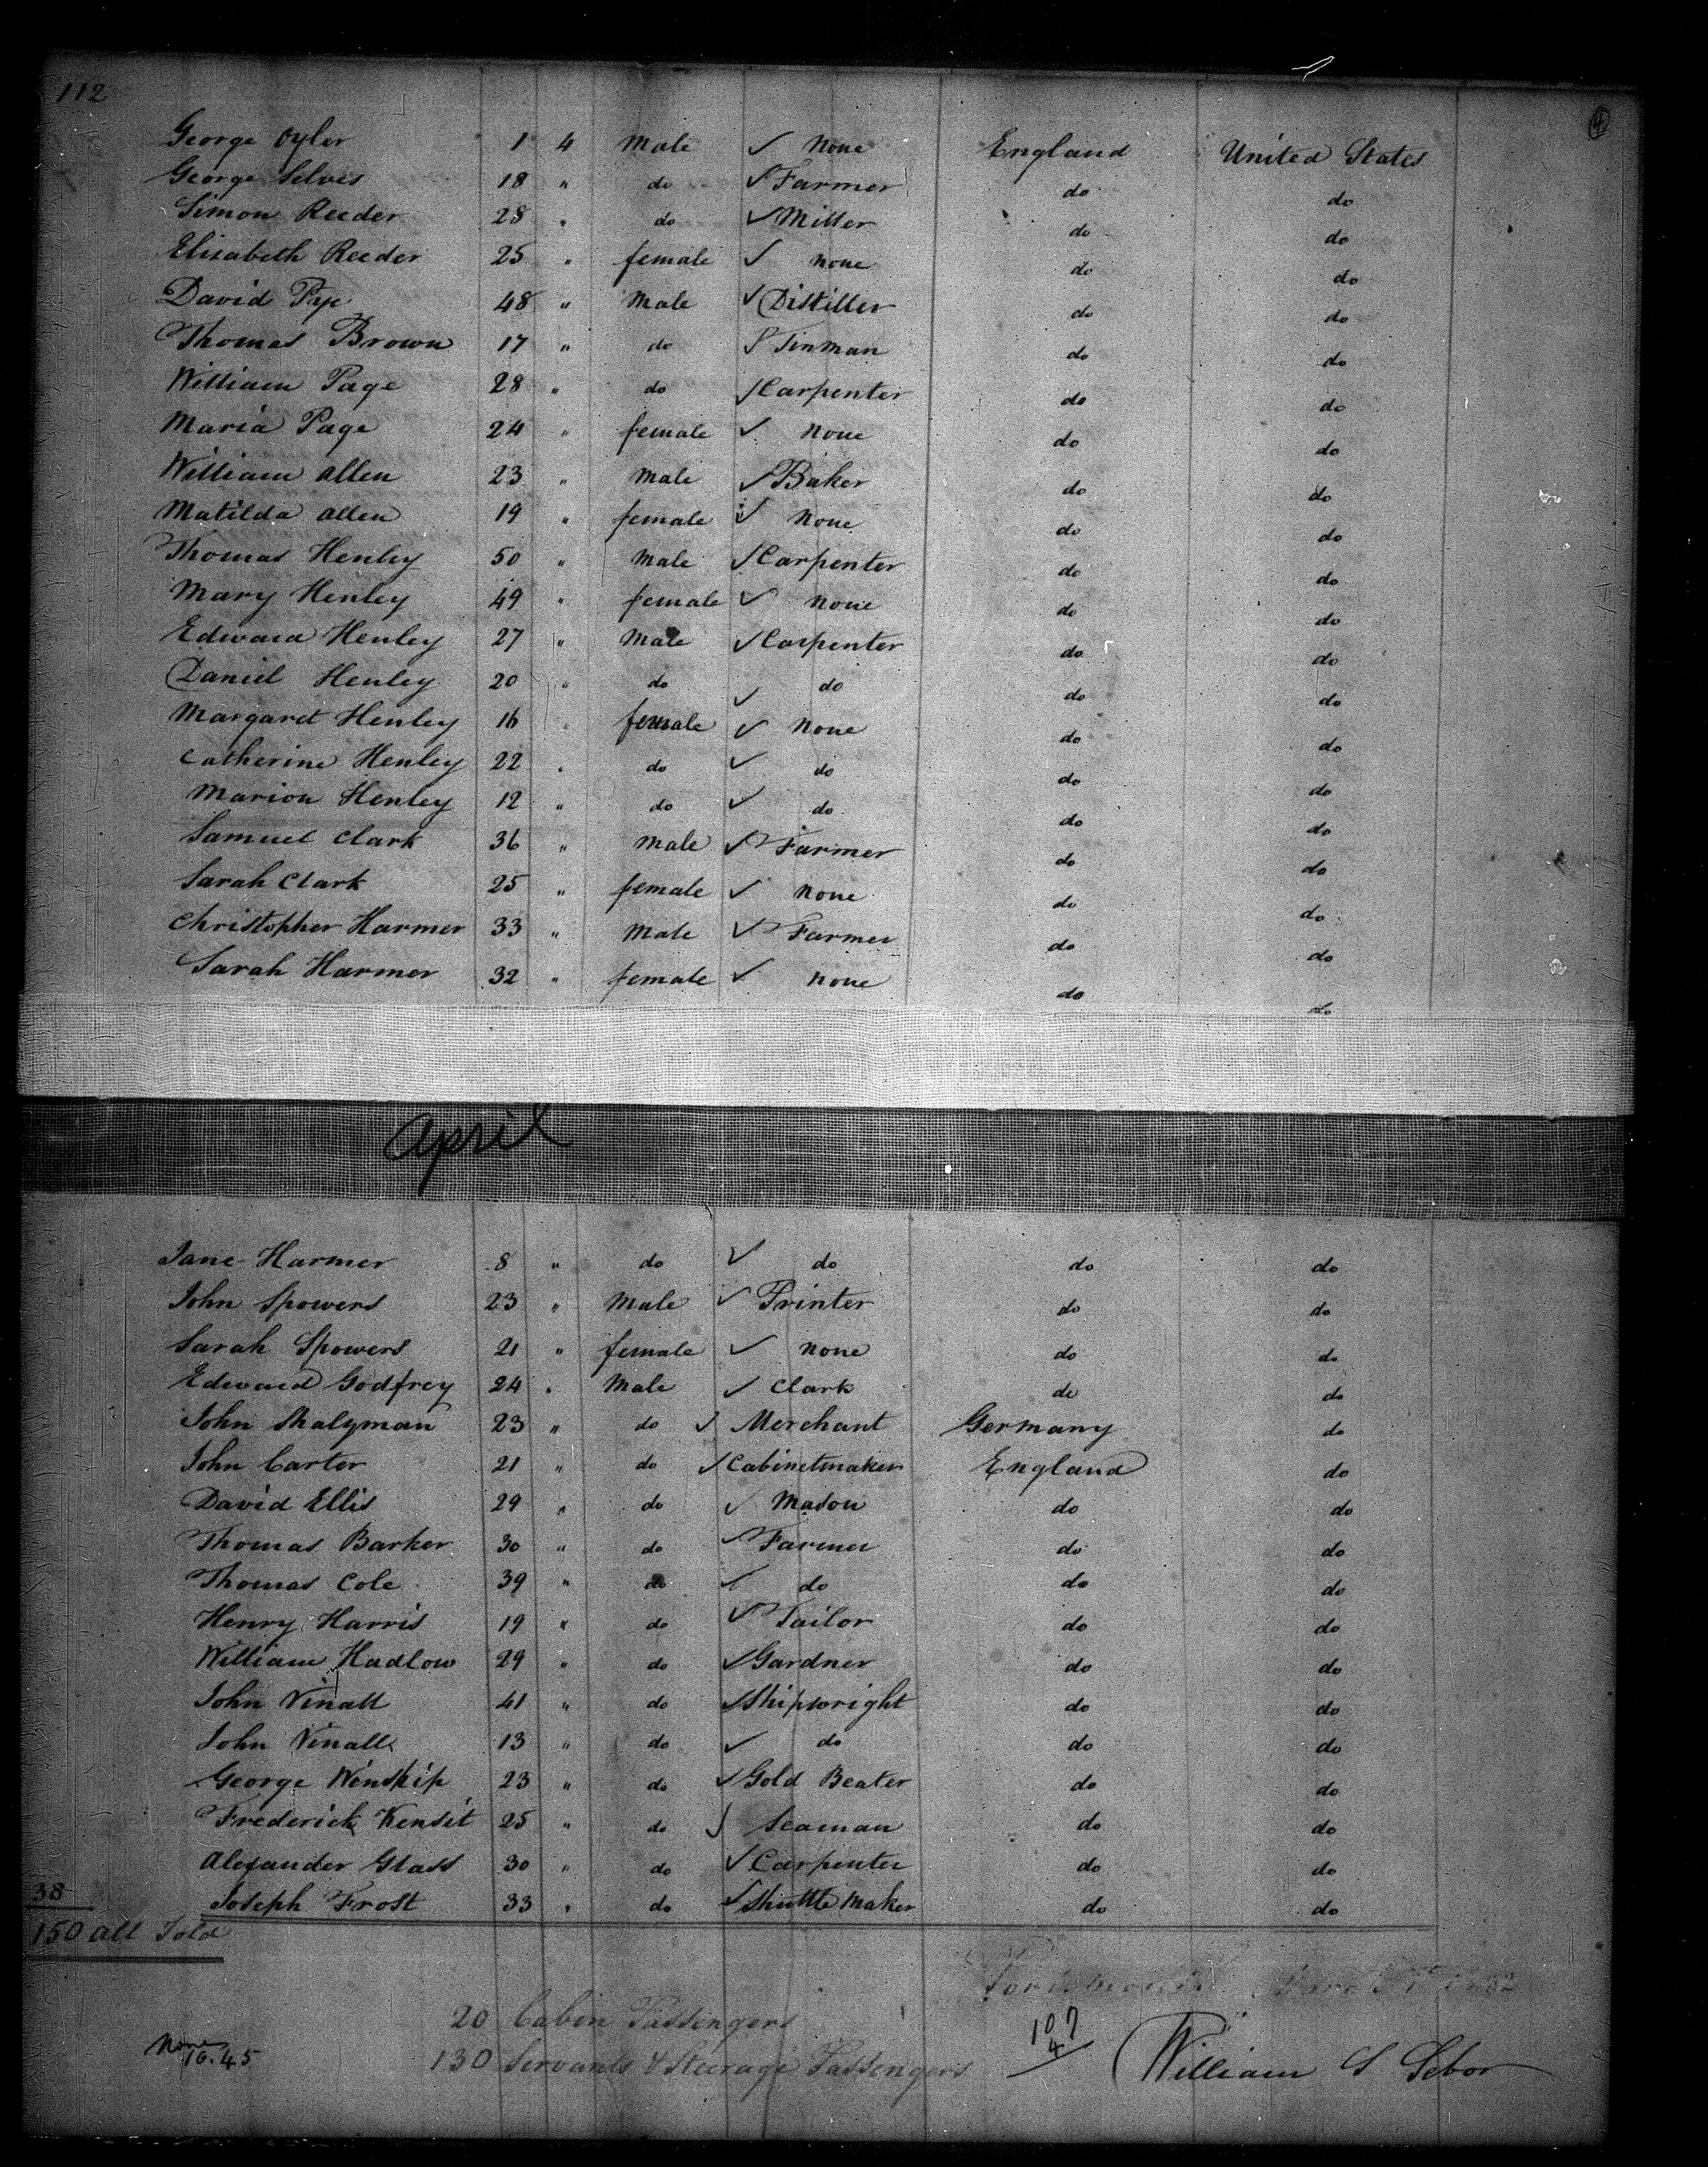 112
4
George Oyler 1 4 Male ✓ None England United States
George Selves 18 " do ✓ Farmer do do
Simon Reeder 28 " do ✓ Miller do do
Elisabeth Reeder 25 " female ✓ none do do
David Pye 48 " Male ✓ Distiller do do
Thomas Brown 17 " do ✓ Tinman do do
William Page 28 " do ✓ Carpenter do do
Maria Page 24 " female ✓ none do do
William Allen 23 " Male ✓ Baker do do
Matilda Allen 19 " female ✓ None do do
Thomas Henley 50 " Male ✓ Carpenter do do
Mary Henley 49 " female ✓ none do do
Edward Henley 27 " Male ✓ Carpenter do do
Daniel Henley 20 " do ✓ do do do
Margaret Henley 16 " female ✓ None do do
Catherine Henley 22 " do ✓ do do do
Marion Henley 12 " do ✓ do do do
Samuel Clark 36 " Male ✓ Farmer do do
Sarah Clark 25 " female ✓ none do do
Christopher Harmer 33 " Male ✓ Farmer do do
Sarah Harmer 32 " female ✓ none do do
April
Jane Harmer 8 " do ✓ do do do
John Spowers 23 " Male ✓ Printer do do
Sarah Spowers 21 " female ✓ none do do
Edward Godfrey 24 " Male ✓ Clark do do
John 23 " do ✓ Merchant Germany do
John Carter 21 " do ✓ Cabinetmaker England do
David Ellis 29 " do ✓ Mason do do
Thomas Barker 30 " do ✓ Farmer do do
Thomas Cole 39 " do ✓ do do do
Henry Harris 19 " do ✓ Tailor do do
William Hadlow 29 " do ✓ Gardner do do
John Vinall 41 " do ✓ Shipwright do do
John Vinall 13 " do ✓ do do do
George Winship 23 " do ✓ Gold Beater do do
Frederick Kensit 25 " do ✓ Seaman do do
Alexander Glass 30 " do ✓ Carpenter do do
38
Joseph Frost 33 " do ✓ Shuttle Maker do do
150 all Told
20 Cabin Passengers
130 Servants & Steerage Passengers
William S Sebor